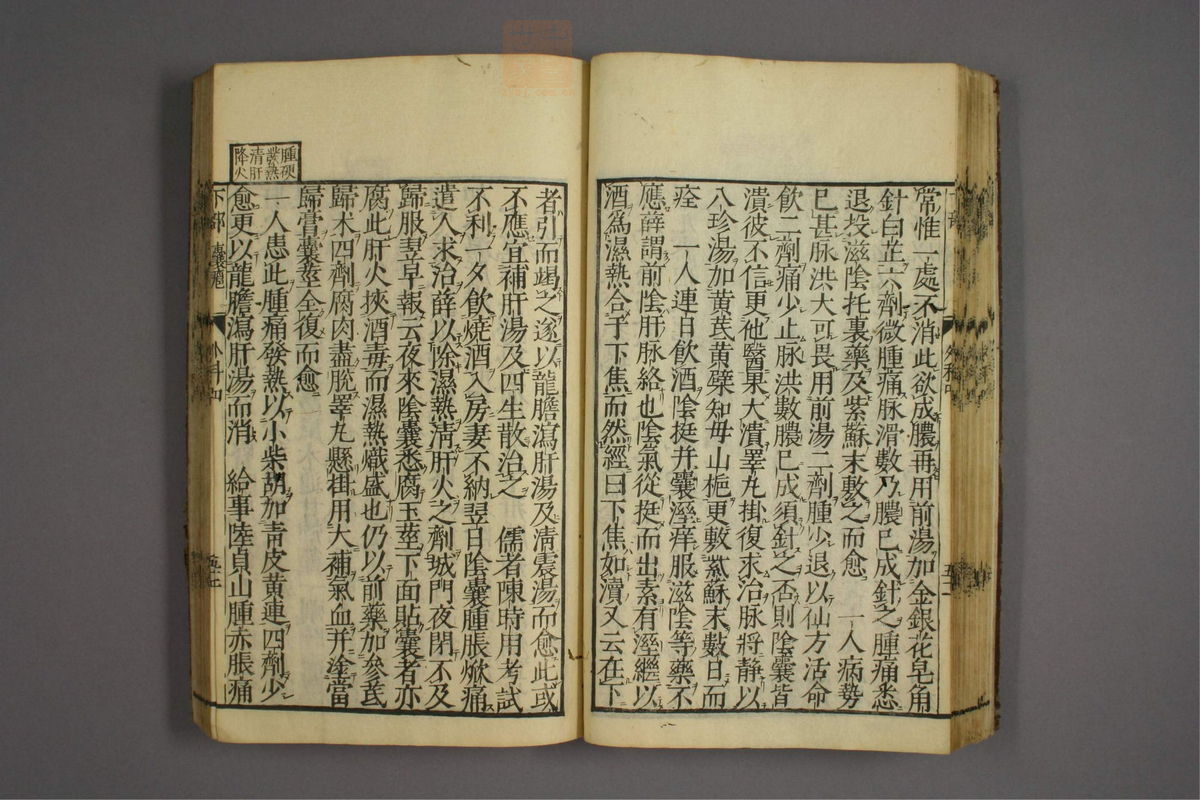 常惟一處不消此欲成膿再用前湯加金銀花皂角
針白芷六劑微腫痛脉滑數乃膿已成針之腫痛悉
退投滋陰托裏藥及紫蘇末敷之而愈　一人病勢
已甚脉洪大可畏用前湯二劑腫少退以仙方活命
飲二劑痛少止脉洪數膿已成須針之否則陰囊皆
潰彼不信更他醫果大潰睪丸掛復求治脉將靜以
八珍湯加黃芪黃檗知母山梔更敷紫蘇末數日而
痊　一人連日飲酒陰挺并囊溼痒服滋陰等藥不
應薛謂前陰肝脉絡也陰氣從挺而出素有溼繼以
酒爲濕熱合于下焦而然經曰下焦如瀆又云在下
者引而竭之遂以龍膽瀉肝湯及清震湯而愈此或
不應宜補肝湯及四生散治之　儒者陳時用考試
不利一夕飲燒酒入房妻不納翌日陰囊腫脹焮痛
遣人求治薛以除濕熱清肝火之劑城門夜閉不及
歸服翌早報云夜來陰囊悉腐玉莖下面貼囊者亦
腐此肝火挾酒毒而濕熱熾盛也仍以前藥加參芪
歸术四劑腐肉盡脫睪丸懸掛用大補氣血并塗當
歸膏囊莖全復而愈
一人患此腫痛發熱以小柴胡加青皮黃連四劑少
愈更以龍膽瀉肝湯而消　給事陸貞山腫赤脹痛
腫硬
發熱
清肝
降火
下部　囊癰
外科四
五十二